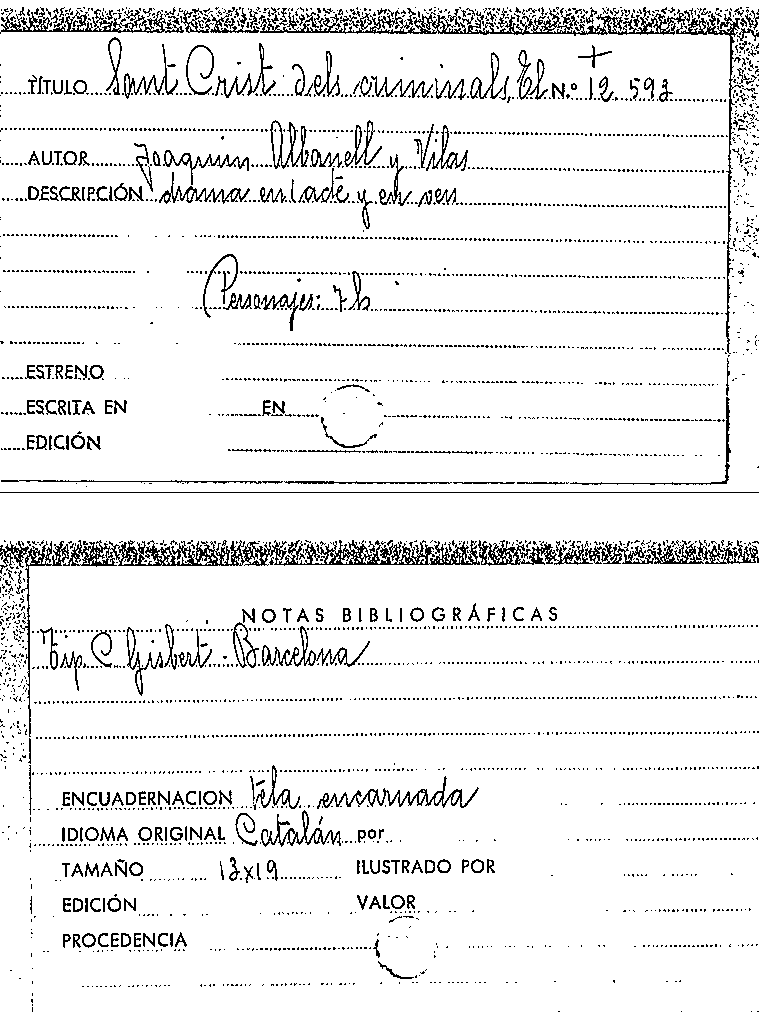 +
TÍTULO Sant Crist dels criminals, El N.º 12.593
AUTOR Joaquim Albanell y Vilas
DESCRIPCIÓN drama en 1 acte y en vers
Personajes: 7 h
ESTRENO
ESCRITA EN EN
EDICIÓN
NOTAS BIBLIOGRÁFICAS
Tip. C. Gisbert - Barcelona
ENCUADERNACION tela encarnada
IDIOMA ORIGINAL Catalán por
TAMAÑO 13x19 ILUSTRADO POR
EDICIÓN VALOR
PROCEDENCIA